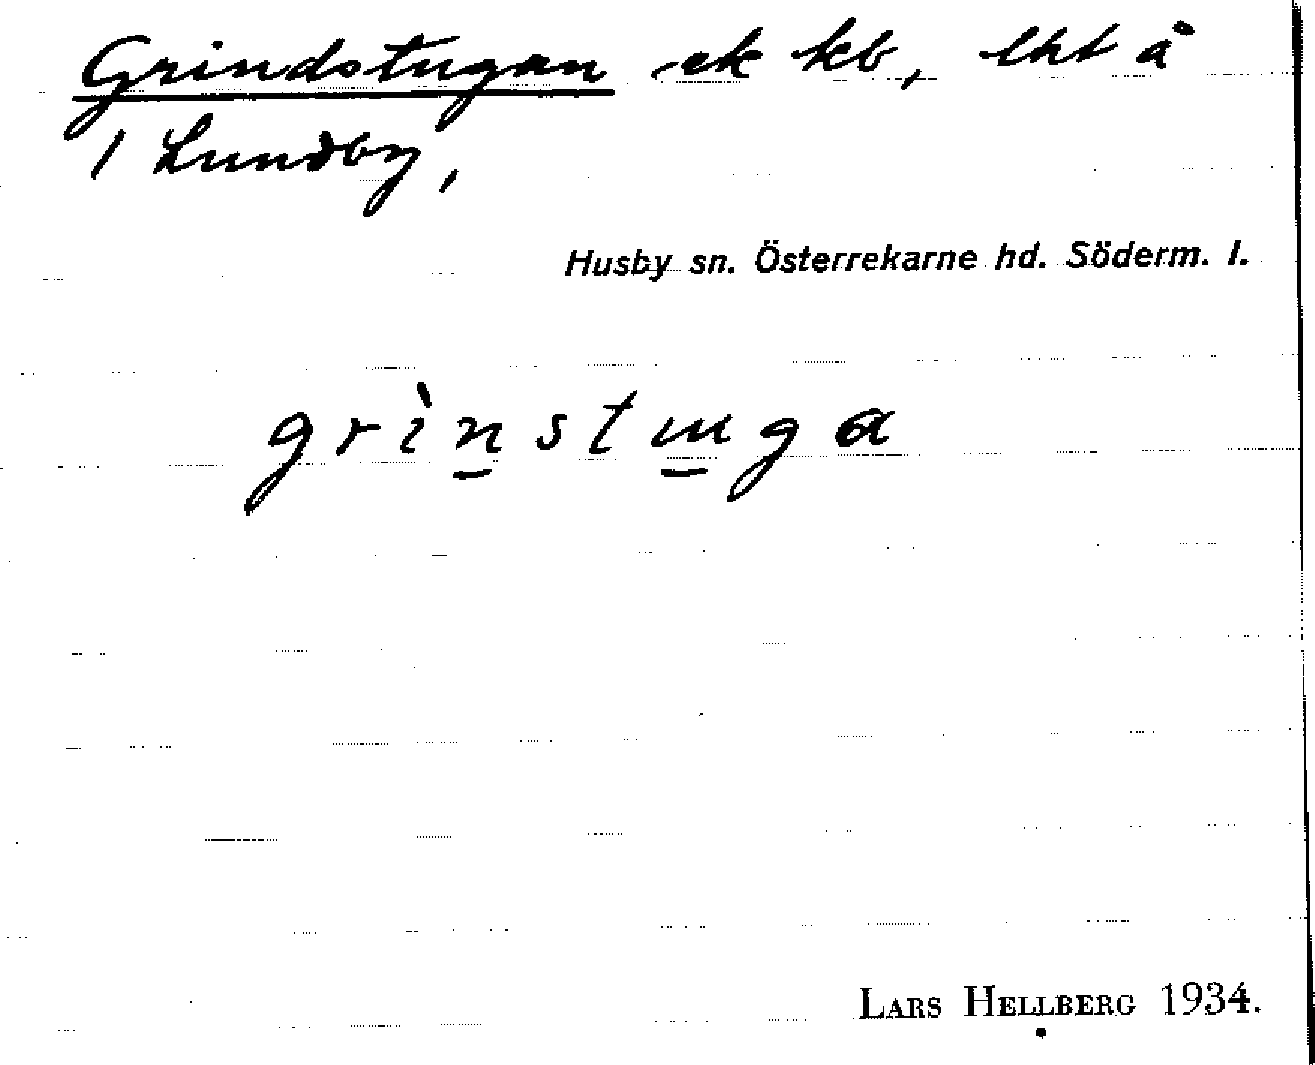 Grindstugan ek kb, lht å
1 Lundby,
Husby sn. Österrekarne hd. Söderm. l.
grìn̲stu̲ga
LARS HELLBERG 1934.